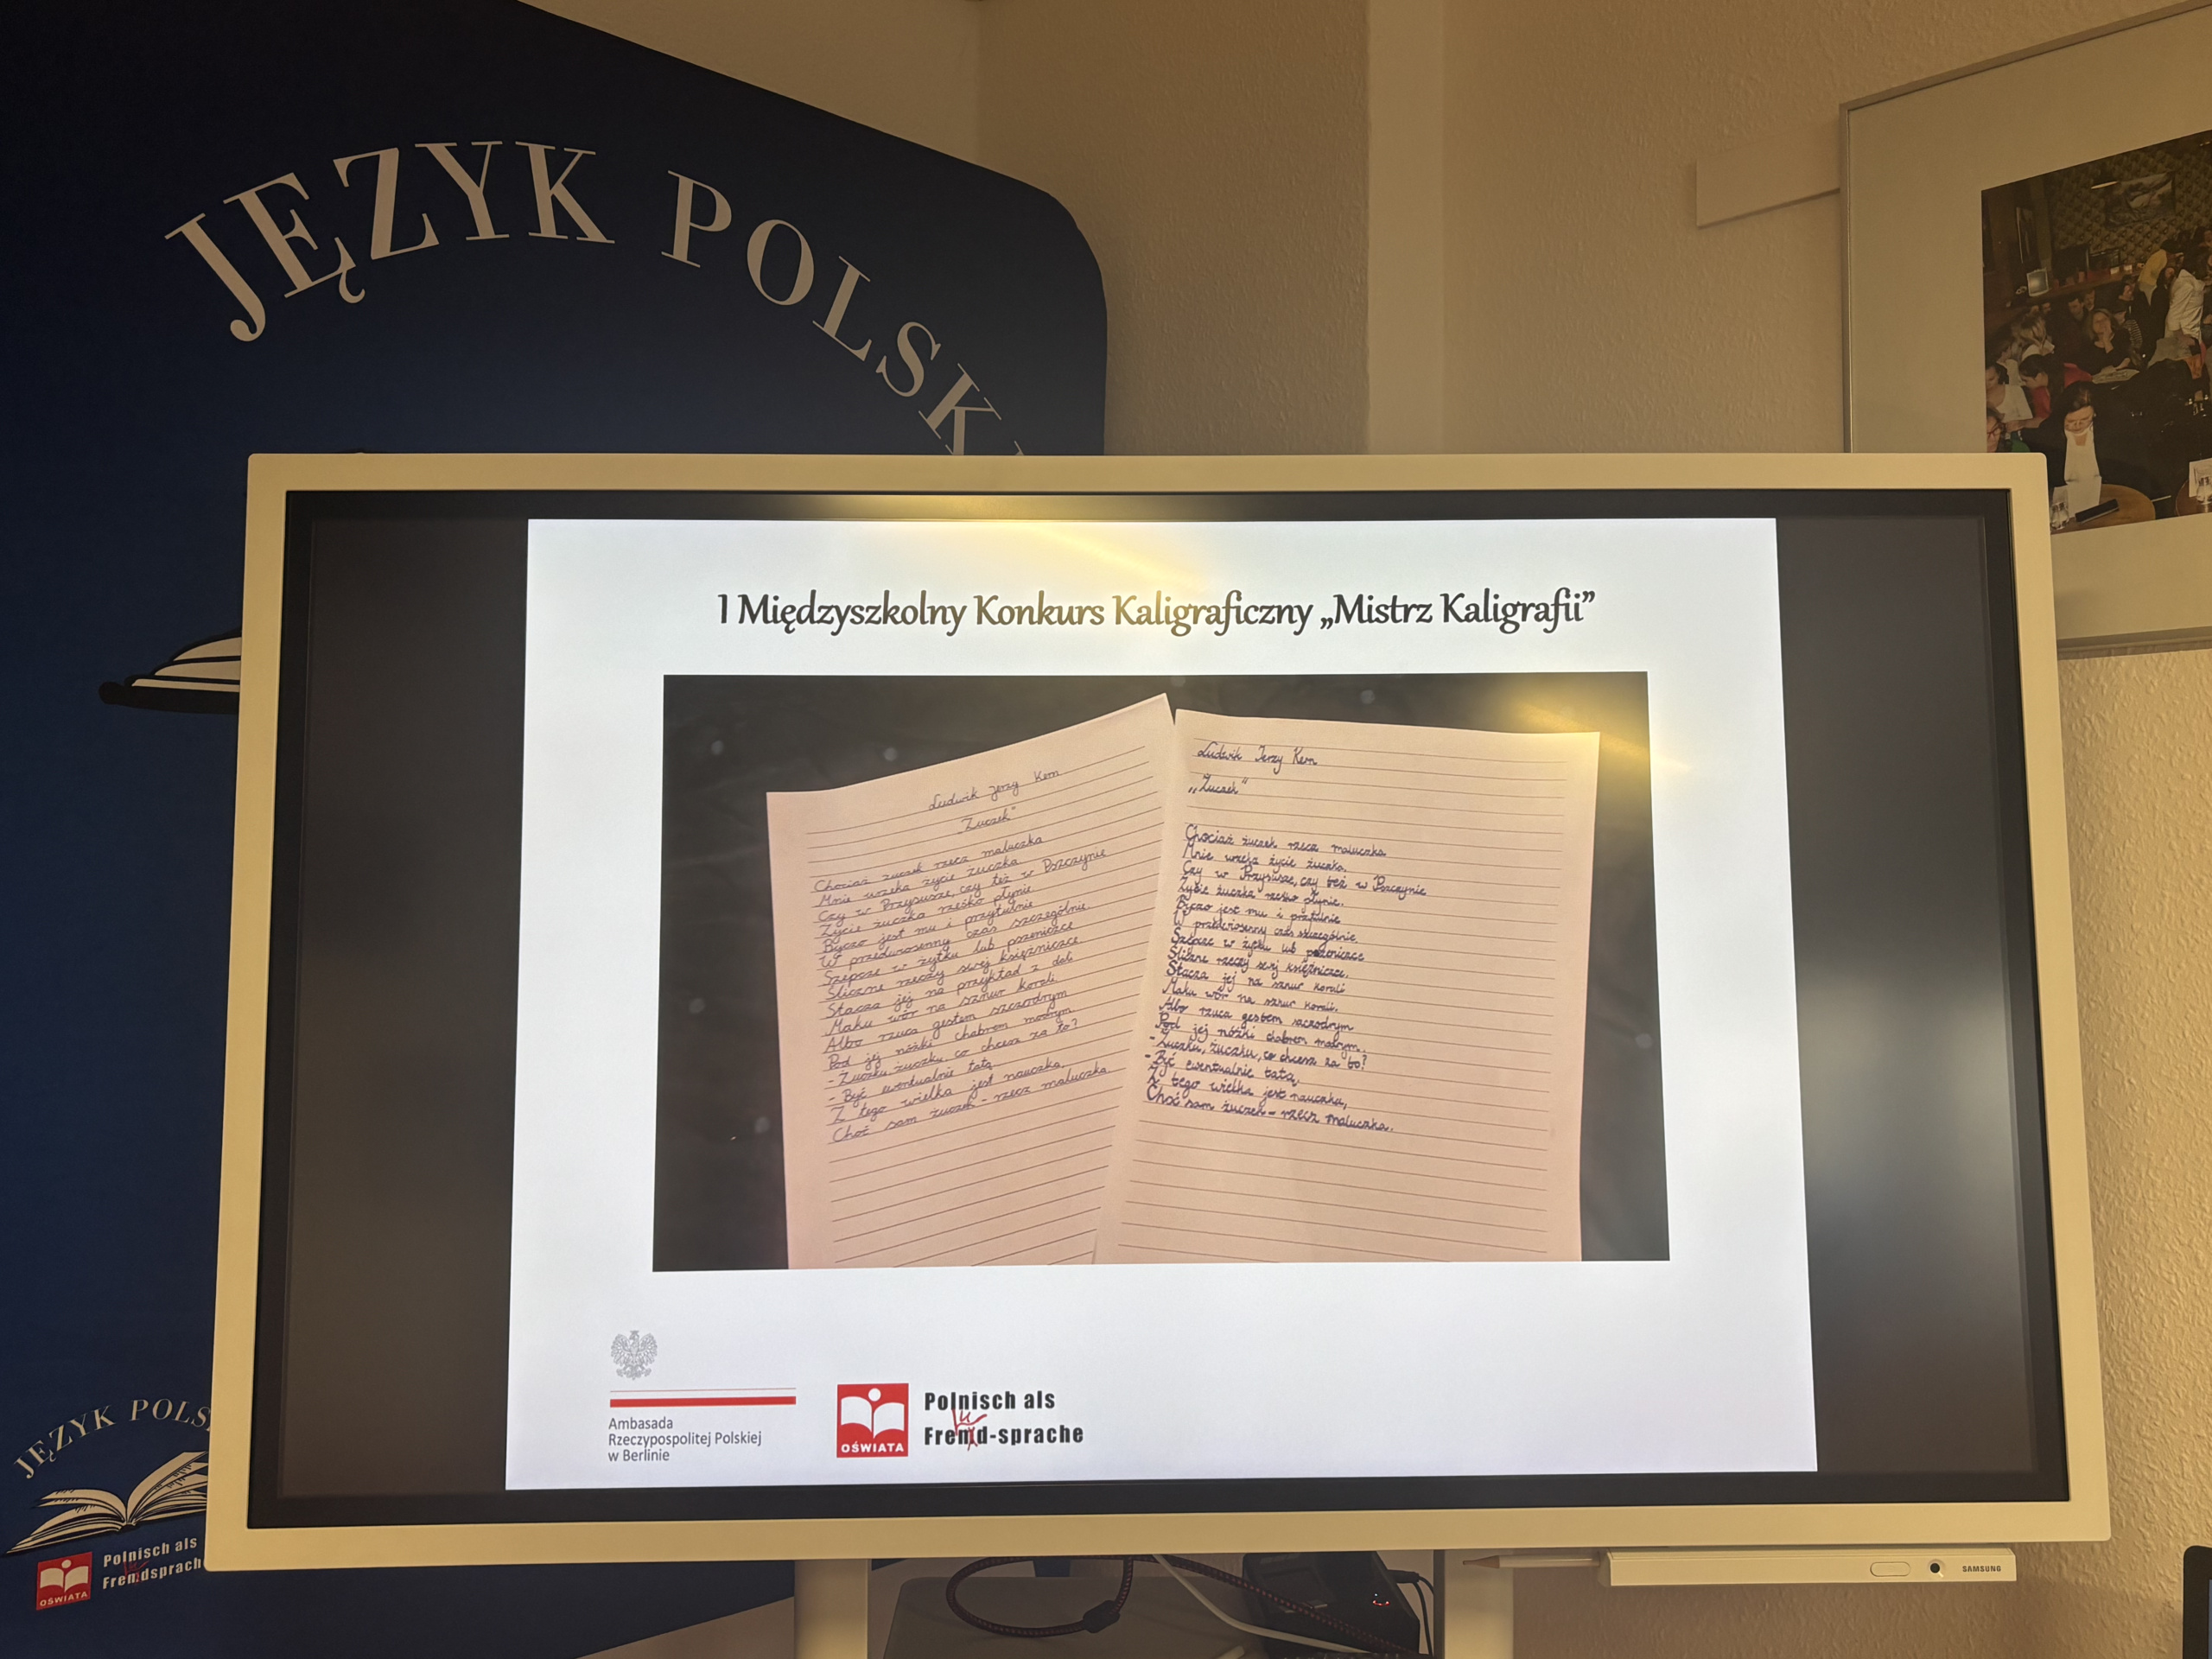 JĘZYK POLSK
I Międzyszkolny Konkurs Kaligraficzny „Mistrz Kaligrafii”
Ludwik Jerzy Kern
„Żuczek”
Chociaż żuczek rzecz maluczka
Mnie urzeka życie żuczka
Czy w Przysusze, czy też w Pszczynie
Życie żuczka rześko płynie
Byczo jest mu i przytulnie
W przedwiosenny czas szczególnie.
Szepcze w żytku lub pszeniczce
Śliczne rzeczy swej księżniczce.
Stacza jej na przykład z dal
Maku wór na sznur korali
Albo rzuca gestem szczodrym
Pod jej nóżki chabrem modrym
- Żuczku, żuczku, co chcesz za to?
- Być ewentualnie tatą.
Z tego wielka jest nauczka,
Choć sam żuczek - rzecz maluczka.
Ludwik Jerzy Kern
„Żuczek”
Chociaż żuczek rzecz maluczka
Mnie urzeka życie żuczka.
Czy w Przysusze, czy też w Pszczynie
Życie żuczka rześko płynie.
Byczo jest mu i przytulnie
W przedwiosenny czas szczególnie.
Szepcze w żytku lub pszeniczce
Śliczne rzeczy swej księżniczce.
Stacza jej na sznur korali
Maku wór na sznur korali.
Albo rzuca gestem szczodrym
Pod jej nóżki chabrem modrym.
- Żuczku, żuczku, co chcesz za to?
- Być ewentualnie tatą.
Z tego wielka jest nauczka,
Choć sam żuczek - rzecz maluczka.
Ambasada
Rzeczypospolitej Polskiej
w Berlinie
OŚWIATA
Polnisch als
Fremd-sprache
JĘZYK POLS
OŚWIATA
Polnisch als
Fremdsprach
SAMSUNG